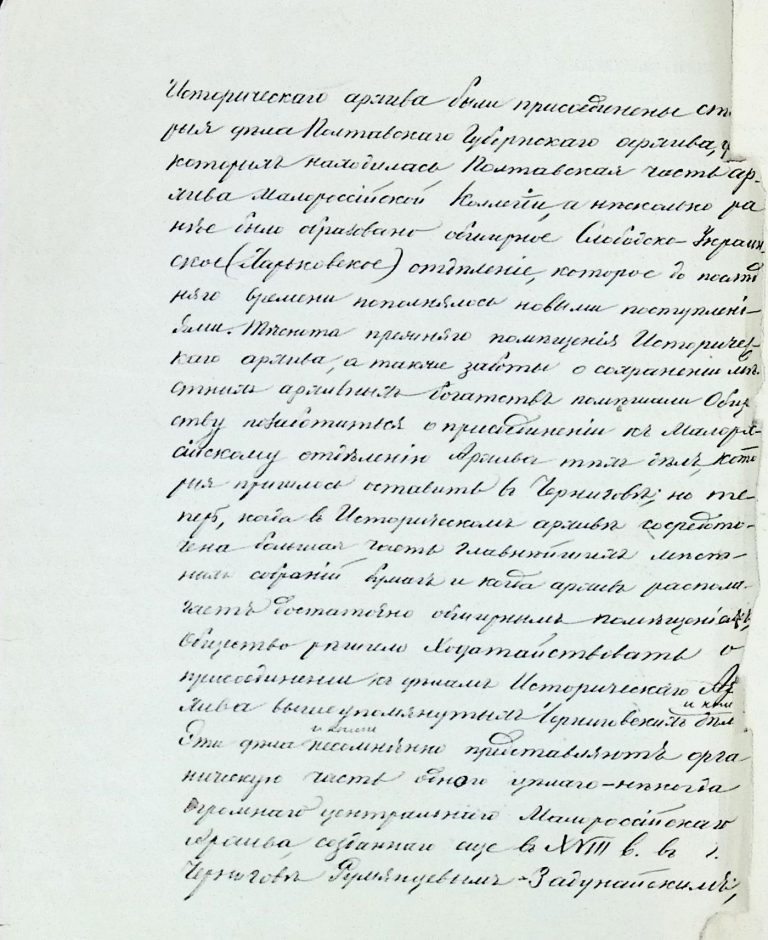 Историческаго архива были присоединены ста-
рыя дѣла Полтавскаго Губернскаго архива, въ
которыхъ находилась Полтавская часть ар-
хива Малороссійской Коллегіи, а нѣсколько ра
нѣе было образовано обширное Слободско-Украин-
ское (Харьковское) отдѣленіе, которое до послѣд
няго времени пополнялось новыми поступлені-
ями. Тѣснота прежняго помѣщенія Историчес-
каго архива, а также заботы о сохраненіи мѣ-
стнымъ архивнымъ богатствъ помѣшали Общ
ству позаботиться о присоединеніи къ Малорос-
сійскому отдѣленію Архива тѣхъ дѣлъ, кото
рыя пришлось оставить въ Черниговѣ; но те-
перь, когда въ Историческомъ архивѣ сосредото-
чена большая часть главнѣйшихъ мѣст-
ныхъ собраній бумагъ и когда архивъ распола-
гаетъ достаточно обширнымъ помѣщеніемъ,
Общество рѣшило ходатайствовать о
присоединеніи къ дѣламъ Историческаго Ар
хива вышеупомянутыхъ Черниговскихъ дѣл
и книг
Эти дѣла и книги несомнѣнно представляютъ орга
ническую часть одного цѣлаго - нѣкогда
огромнаго центральнаго Малороссійскаго
Архива, созданнаго еще въ XVIII в. въ г.
Черниговѣ Румянцевымъ-Задунайскимъ,